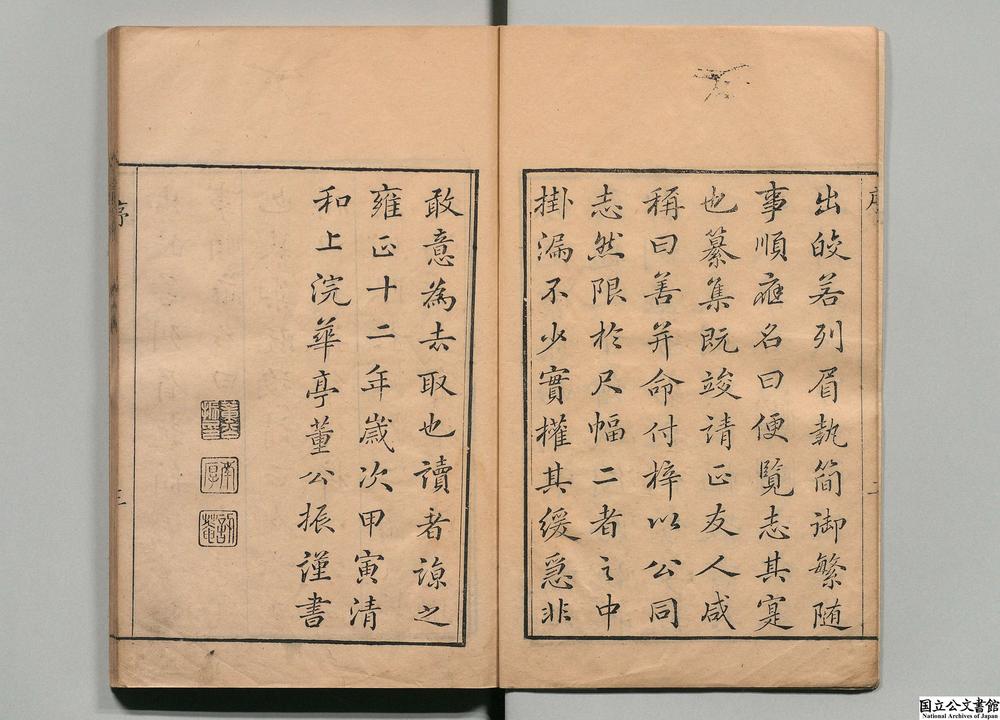 出皎若列眉執簡御繁随
事順應名曰便覽志其寔
也纂集既竣請正友人咸
稱曰善并命付梓以公同
志然限於尺幅二者之中
掛漏不少實擢其緩急非
敢意為去取也讀者諒之
雍正十二年歲次甲寅清
和上浣華亭董公振謹書
序
三
国立公文書館
National Archives of Japan